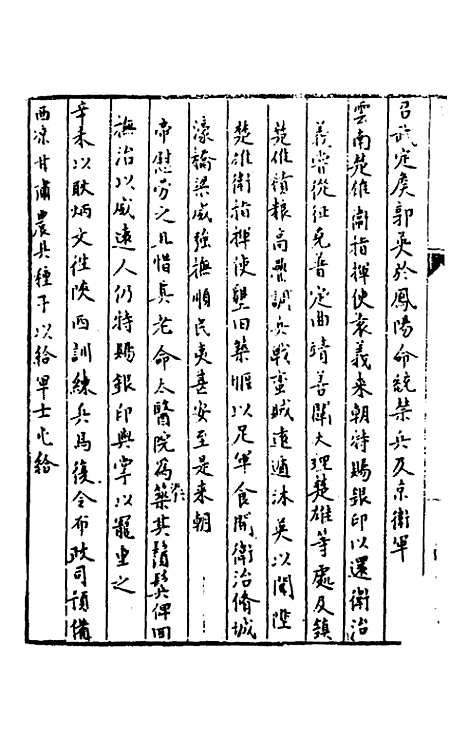 召武定侯郭英於鳳陽命統禁兵及京衛軍
雲南楚雄衛指揮使袁義來朝特賜銀印以還衛治
義嘗從征克普定曲靖善闡大理楚雄等處及鎮
楚雄積粮高壘調兵戰蛮賊遠遁沐英以聞陞
楚雄衛指揮使墾田築堰以足軍食開衛治脩城
濠橋梁威強撫順民夷喜安至是来朝
帝慰勞之且惜其老命太醫院為藥其鬚鬓俾囬
撫治以威遠人仍特賜銀印與掌以寵重之
辛未以耿炳文徃陝西訓練兵馬復令布政司預備
西凉甘肅農具種子以給軍士屯給